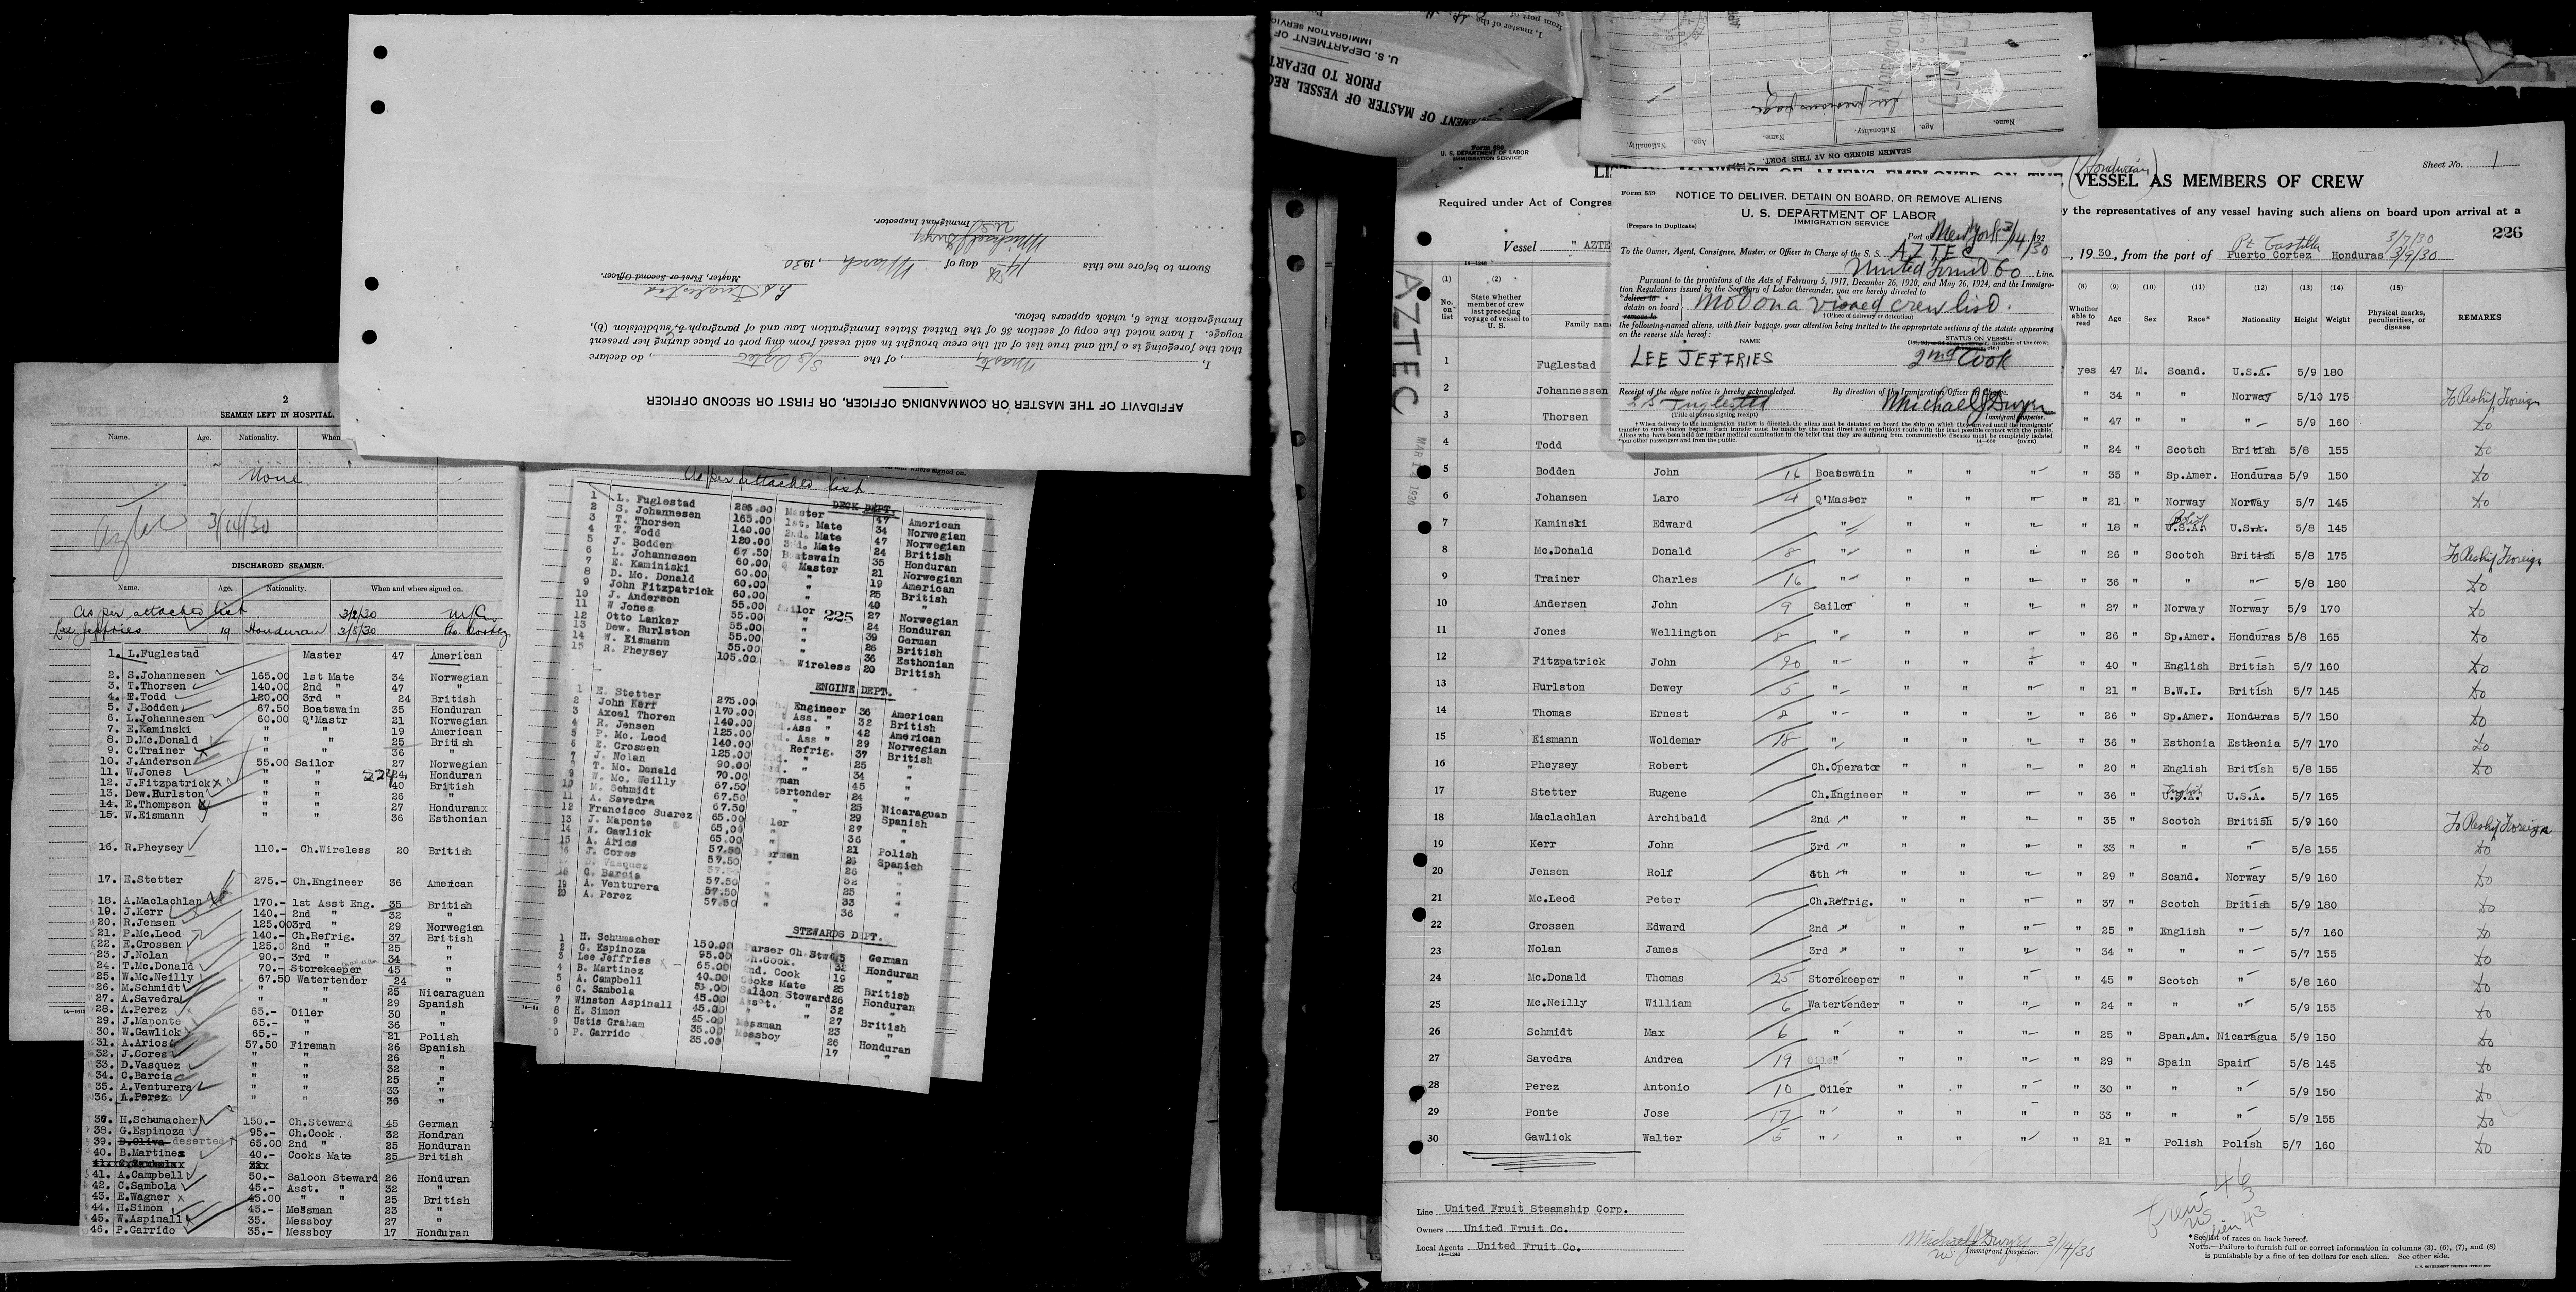 AFFIDAVIT OF THE MASTER OR COMMANDING OFFICER, OR FIRST OR SECOND OFFICER
I, Master, of the SS Aztec, do declare
that the foregoing is a full and true list of all the crew brought in said vessel from any port or place during her present
voyage. I have noted the copy of section 36 of the United States Immigration Law and of paragraph 5, subdivision (b),
Immigration Rule 6, which appears below.
L S Fuglestad
Master, First or Second Officer.
Sworn to before me this 14th day of March, 1930
Michael J Dwyer
US Immigrant Inspector.
2
SEAMEN LEFT IN HOSPITAL.
Name. Age. Nationality.
None
Aztec 3/14/30
DISCHARGED SEAMEN.
Name. Age. Nationality. When and where signed on.
As per attached list 3/2/30 NYC
Lee Jeffries 19 Honduran 3/8/30 Po. Cortez
1. L.Fuglestad Master 47 American
2. S.Johannesen 165.00 1st Mate 34 Norwegian
3. T.Thorsen 140.00 2nd " 47 "
4. T.Todd 120.00 3rd " 24 British
5. J.Bodden 67.50 Boatswain 35 Honduran
6. L.Johannesen 60.00 Q'Mastr 21 Norwegian
7. E.Kaminski " " 19 American
8. D.Mc.Donald " " 25 British
9. C.Trainer " " 36 "
10. J.Anderson 55.00 Sailor 27 Norwegian
11. W.Jones " " 24 Honduran
12. J.Fitzpatrick " " 40 British
13. Dew.Hurlston " " 26 "
14. E.Thompson " " 27 Honduran
15. W.Eismann " " 36 Esthonian
16. R.Pheysey 110.- Ch.Wireless 20 British
17. E.Stetter 275.- Ch.Engineer 36 American
18. A.Maclachlan 170.- 1st Asst Eng. 35 British
19. J.Kerr 140.- 2nd " 32 "
20. R.Jensen 125.00 3rd " 29 Norwegian
21. P.Mc.Leod 140.- Ch.Refrig. 37 British
22. E.Crossen 125.0 2nd " 25 "
23. J.Nolan 90.- 3rd " 34 "
24. T.Mc.Donald 70.- Storekeeper 45 "
25. W.Mc.Neilly 67.50 Watertender 24 "
26. M.Schmidt " " 25 Nicaraguan
27. A.Savedra " " 29 Spanish
28. A.Perez 65.- Oiler 30 "
29. J.Maponte 65.- " 36 "
30. W.Gawlick 65.- " 21 Polish
31. A.Arios 57.50 Fireman 26 Spanish
32. J.Cores " " 26 "
33. D.Vasquez " " 32 "
34. C.Barcia " " 25 "
35. A.Venturera " " 33 "
36. A.Perez " " 36 "
37. H.Schumacher 150.- Ch.Steward 45 German
38. G.Espinoza 95.- Ch.Cook . 32 Hondran
39. D.Oliva deserted 65.00 2nd " 25 Honduran
40. B.Martinez 40.- Cooks Mate 25 British
41. A.Campbell 50.- Saloon Steward 26 Honduran
42. C.Sambola 45.- Asst. " 32 "
43. E.Wagner x 45.00 " " 25 British
44. H.Simon 45.- Messman 23 "
45. W.Aspinall 35. Messboy 27 "
46. P.Garrido 35.- Messboy 17 Honduran
As per attached list
DECK DEPT.
1 L. Fuglestad Master 47 American
2 S. Johannesen 165.00 1st. Mate 34 Norwegian
3 T. Thorsen 140.00 2nd. Mate 47 Norwegian
4 T. Todd 120.00 3rd. Mate 24 British
5 J. Bodden 67.50 Boatswain 35 Honduran
6 L. Johannesen 60.00 Q Master 21 Norwegian
7 E. Kaminiski 60.00 " 19 American
8 D. Mc. Donald 60.00 " 25 British
9 John Fitzpatrick 60.00 " 40 "
10 J. Anderson 55.00 Sailor 27 Norwegian
225
11 W Jones 55.00 " 24 Honduran
12 Otto Lanker 55.00 " 39 German
13 Dew. Hurlston 55.00 " 26 British
14 W. Eismann 55.00 " 36 Esthonian
15 R. Pheysey 105.00 Wireless 20 British
ENGINE DEPT.
1 E. Stetter 275.00 Engineer 36 American
2 John Kerr 170.00 Ass. " 32 British
3 Axcel Thoren 140.00 Ass " 42 American
4 R. Jensen 125.00 Ass " 29 Norwegian
5 P. Mc. Leod 140.00 Refrig. 37 British
6 E. Crossen 125.00 " 25 "
7 J. Nolan 90.00 " 34 "
8 T. Mc. Donald 70.00 45 "
9 W. Mc. Neilly 67.50 Watertender 24 "
10 M. Schmidt 67.50 " 25 Nicaraguan
11 A. Savedra 67.50 " 29 Spanish
12 Francisco Suarez 65.00 27 "
13 J. Maponte 65.00 " 36 "
14 W. Gawlick 65.00 " 21 Polish
15 A. Arios 57.50 Fireman 26 Spanish
16 J. Cores 57.50 " 26 "
D. Vasquez 57.50 " 32 "
18 C. Barcia 57.50 " 25 "
19 A. Venturera 57.50 " 33 "
20 A. Perez 57.50 " 36 "
STEWARDS DEPT.
1 H. Schumacher 150.00 Purser Ch Stwd 45 German
2 G. Espinoza 95.00 Ch.Cook. 32 Honduran
3 Lee Jeffries 65.00 2nd. Cook 19 "
4 B. Martinez 40.00 Cooks Mate 25 British
5 A. Campbell Saloon Steward 26 Honduran
6 C. Sambola 45.00 Asst. " 32 "
7 Winston Aspinall 45.00 " " 27 British
8 H. Simon 45.00 Messman 23 "
9 Ustis Graham 35.00 Messboy 26 Honduran
0 P. Garrido 35.00 " 17 "
U. S. DEPARTMENT OF
IMMIGRATION SERVICE
PRIOR TO DEPART
MENT OF MASTER OF VESSEL REG
See previous page
Name. Age. Nationality. Name. Age. Nationality.
SEAMEN SIGNED ON AT THIS PORT.
Form 680
U. S. DEPARTMENT OF LABOR
IMMIGRATION SERVICE
Sheet No. 1
(Honduran)
VESSEL AS MEMBERS OF CREW
Required under Act of Congres
y the representatives of any vessel having such aliens on board upon arrival at a
226
Vessel " AZTE
, 1930, from the port of Puerto Cortez Honduras 3/9/30
Pt Castilla 3/7/30
AZTEC
MAR 1 1930
Form 889
NOTICE TO DELIVER, DETAIN ON BOARD, OR REMOVE ALIENS
U. S. DEPARTMENT OF LABOR
IMMIGRATION SERVICE
(Prepare in Duplicate)
Port of New York 3/14/30
To the Owner, Agent, Consignee, Master, or Officer in Charge of the S. S. AZTEC
United Fruit Co Line.
Pursuant to the provisions of the Acts of February 5, 1917, December 26, 1920, and May 26, 1924, and the Immigra-
tion Regulations issued by the Secretary of Labor thereunder, you are hereby directed to
*deliver to
detain on board
remove to
Not on a visaed crew list.
†(Place of delivery or detention)
the following-named aliens, with their baggage, your attention being invited to the appropriate sections of the statute appearing
on the reverse side hereof:
NAME STATUS ON VESSEL
LEE JEFFRIES 2nd Cook
Receipt of the above notice is hereby acknowledged. By direction of the Immigration Officer in Charge.
L S Fuglestad Michael J Dwyer
(Title of person signing receipt) Immigrant Inspector.
† When delivery to the immigration station is directed, the aliens must be detained on board the ship on which they arrived until the immigrants'
transfer to such station begins. Such transfer must be made by the most direct and expeditious route with the least possible contact with the public.
Aliens who have been held for further medical examination in the belief that they are suffering from communicable diseases must be completely isolated
from other passengers and from the public.
(OVER)
(1) (2) (8) (9) (10) (11) (12) (13) (14) (15)
No. on list State whether member of crew last preceding voyage of vessel to U. S. Family name Whether able to read Age Sex Race* Nationality Height Weight Physical marks, peculiarities, or disease REMARKS
1 Fuglestad yes 47 M. Scand. U.S.A. 5/9 180
2 Johannessen " 34 " " Norway 5/10 175 To Reship Foreign
3 Thorsen " 47 " " " 5/9 160 do
4 Todd " 24 " Scotch British 5/8 155 do
5 Bodden John 16 Boatswain " " " " 35 " Sp.Amer. Honduras 5/9 150 do
6 Johansen Laro 4 Q'Master " " " " 21 " Norway Norway 5/7 145 do
7 Kaminski Edward " " " " " 18 " Polish U.S.A. U.S.A. 5/8 145
8 Mc.Donald Donald 8 " " " " " 26 " Scotch British 5/8 175 To Reship Foreign
9 Trainer Charles 16 " " " " " 36 " " " 5/8 180 do
10 Andersen John 9 Sailor " " " " 27 " Norway Norway 5/9 170 do
11 Jones Wellington 8 " " " " " 26 " Sp.Amer. Honduras 5/8 165 do
12 Fitzpatrick John 20 " " " " " 40 " English British 5/7 160 do
13 Hurlston Dewey 5 " " " " " 21 " B.W.I. British 5/7 145 do
14 Thomas Ernest 8 " " " " " 26 " Sp.Amer. Honduras 5/7 150 do
15 Eismann Woldemar 18 " " " " " 36 " Esthonia Esthonia 5/7 170 do
16 Pheysey Robert Ch.Operator " " " " 20 " English British 5/8 155 do
17 Stetter Eugene Ch.Engineer " " " " 36 " English U.S.A. U.S.A. 5/7 165
18 Maclachlan Archibald 2nd " " " " " 35 " Scotch British 5/9 160 To Reship Foreign
19 Kerr John 3rd " " " " " 33 " " " 5/8 155 do
20 Jensen Rolf 4th " " " " " 29 " Scand. Norway 5/9 160 do
21 Mc.Leod Peter Ch.Refrig. " " " " 37 " Scotch British 5/9 180 do
22 Crossen Edward 2nd " " " " " 25 " English " 5/7 160 do
23 Nolan James 3rd " " " " " 34 " " " 5/7 155 do
24 Mc.Donald Thomas 25 Storekeeper " " " " 45 " Scotch " 5/8 160 do
25 Mc.Neilly William 6 Watertender " " " " 24 " " " 5/9 155 do
26 Schmidt Max 6 " " " " " 25 " Span.Am. Nicaragua 5/9 150 do
27 Savedra Andrea 19 " " " " " 29 " Spain Spain 5/8 145 do
28 Perez Antonio 10 Oiler " " " " 30 " " " 5/9 150 do
29 Ponte Jose 17 " " " " " 33 " " " 5/9 155 do
30 Gawlick Walter 5 " " " " " 21 " Polish Polish 5/7 160 do
Line United Fruit Steamship Corp.
Owners United Fruit Co.
Local Agents United Fruit Co.
14—1240
Michael J Dwyer 3/14/30
US Immigrant Inspector.
Crew 46
US 3
Alien 43
*See list of races on back hereof.
NOTE.—Failure to furnish full or correct information in columns (3), (6), (7), and (8)
is punishable by a fine of ten dollars for each alien. See other side.